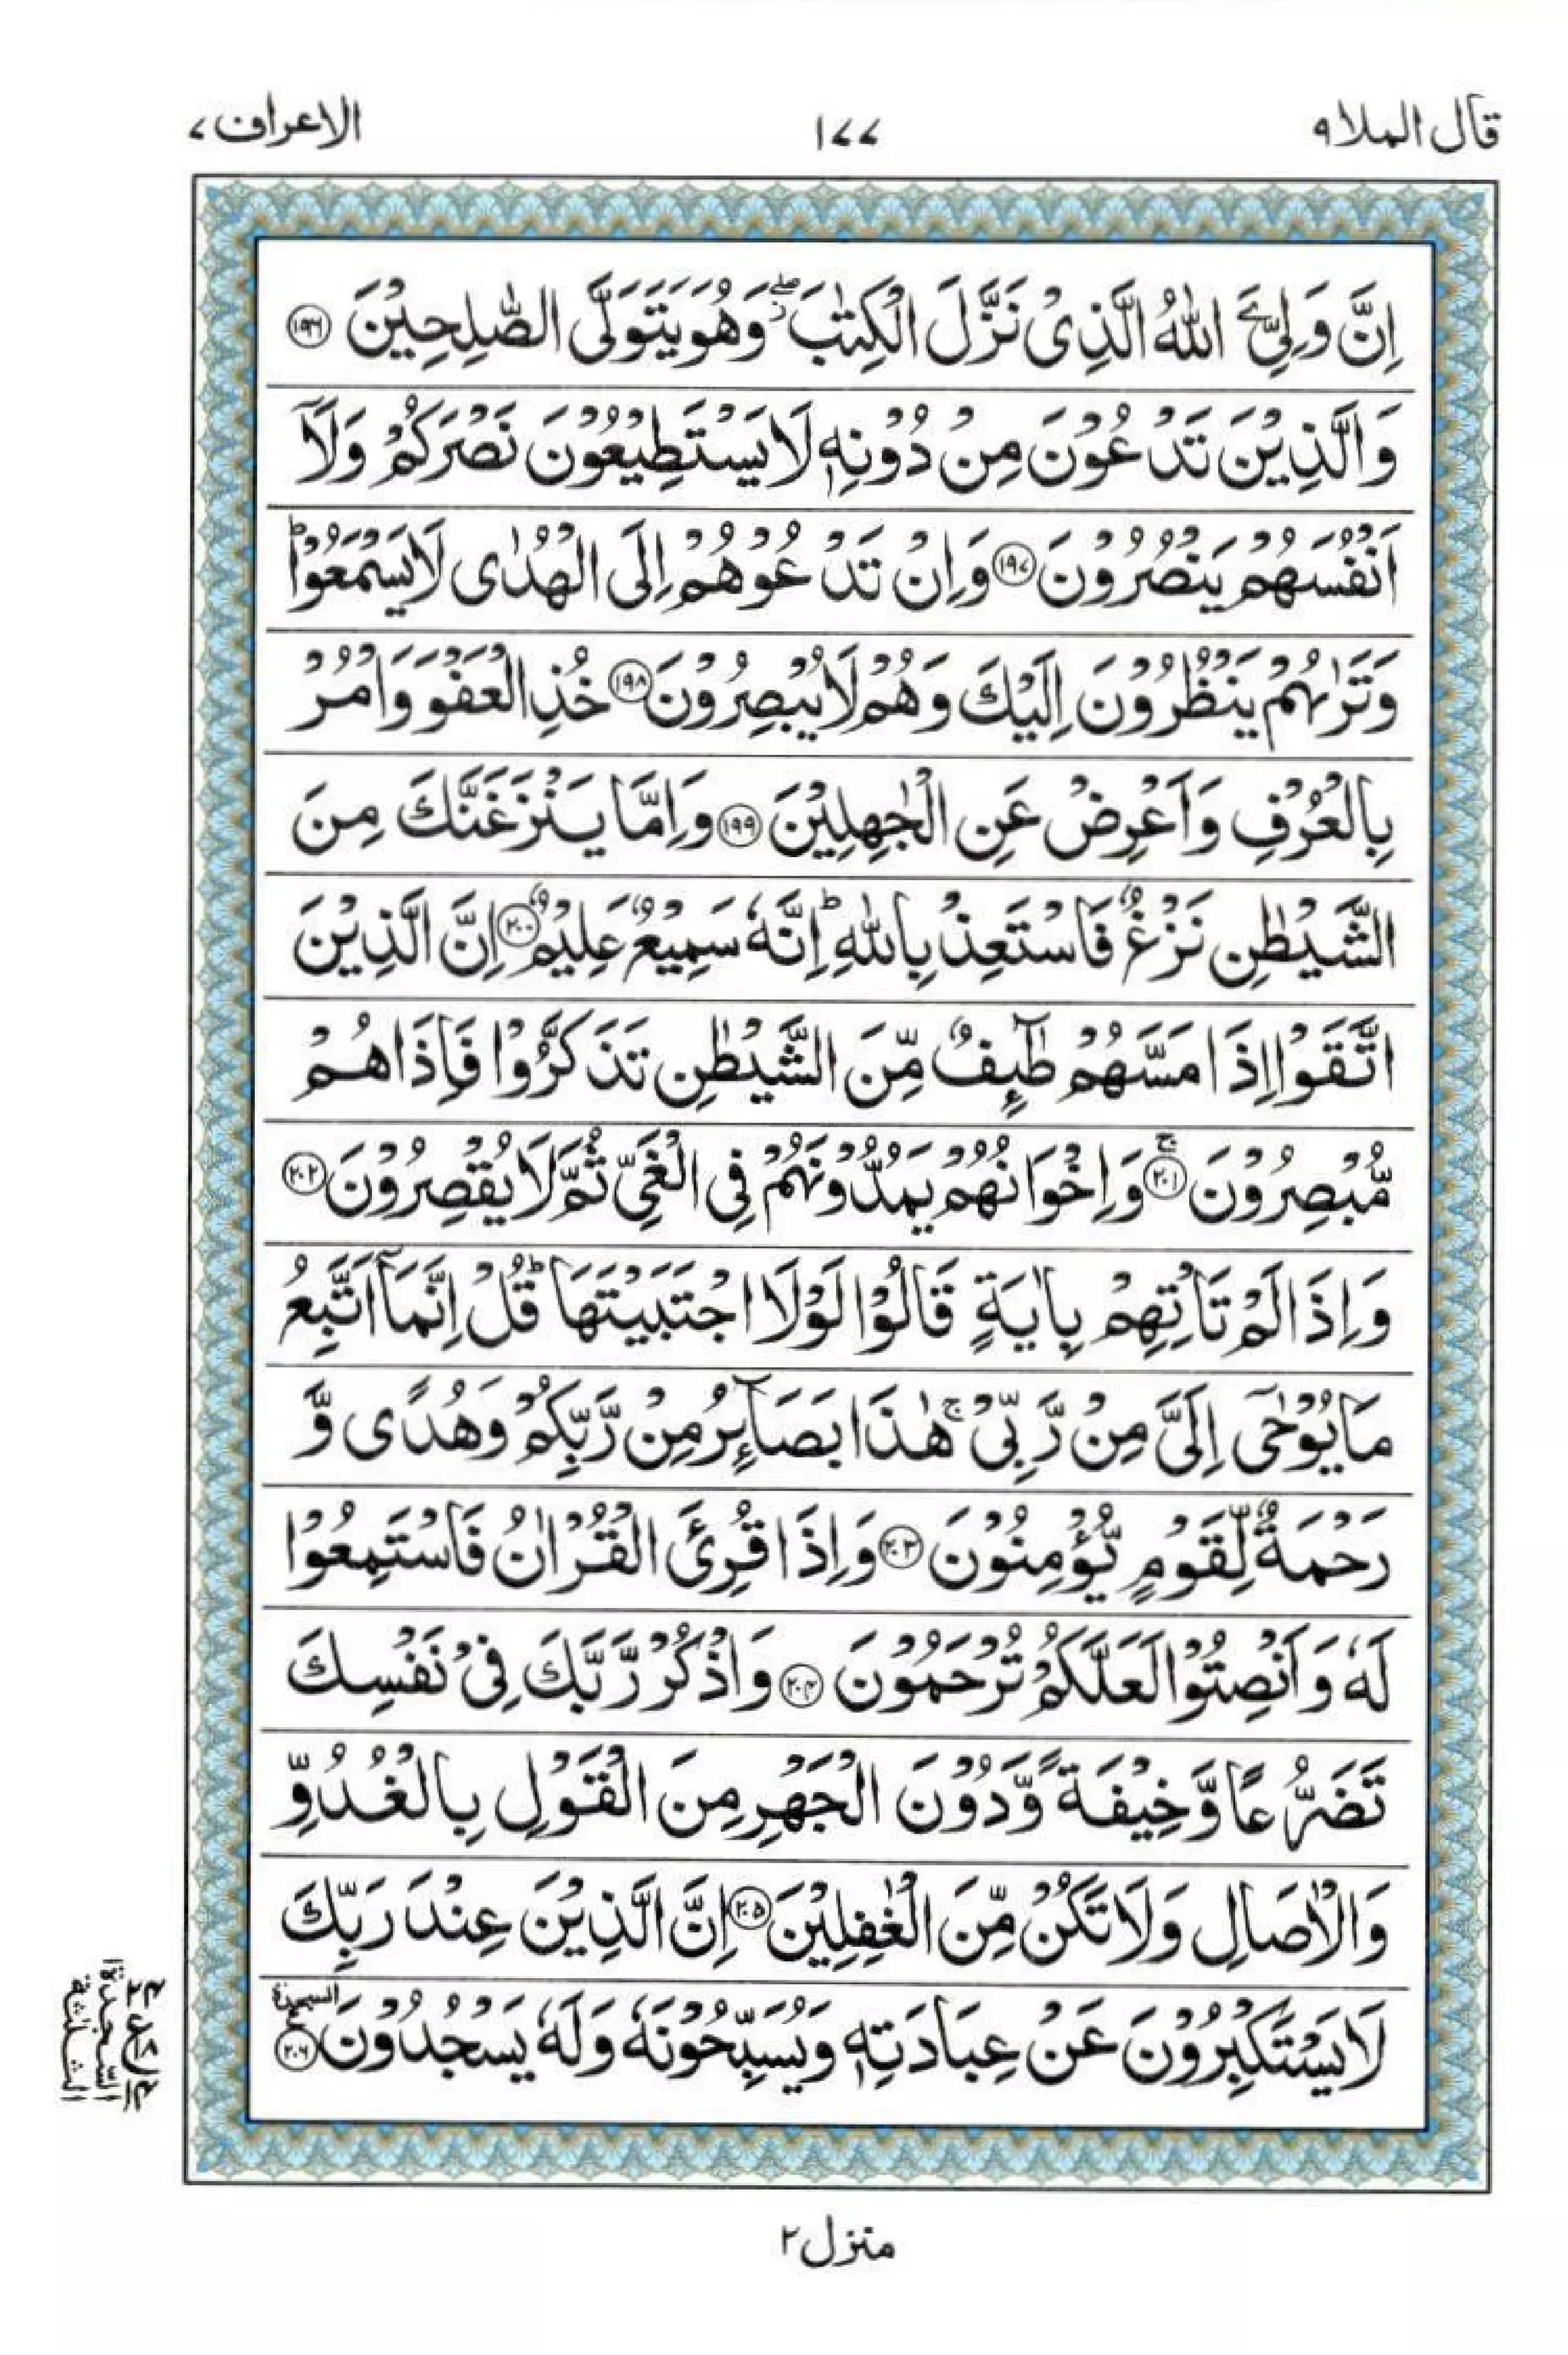 قال الملا ٩
١٧٧
الاعراف ٧
اِنَّ وَلِیِّۦَ اللّٰهُ الَّذِیْ نَزَّلَ الْكِتٰبَ ۖؗ وَهُوَ یَتَوَلَّی الصّٰلِحِیْنَ ۝۱۹۶
وَالَّذِیْنَ تَدْعُوْنَ مِنْ دُوْنِهٖ لَا یَسْتَطِیْعُوْنَ نَصْرَكُمْ وَلَاۤ
اَنْفُسَهُمْ یَنْصُرُوْنَ ۝۱۹۷ وَاِنْ تَدْعُوْهُمْ اِلَی الْهُدٰی لَا یَسْمَعُوْا ؕ
وَتَرٰىهُمْ یَنْظُرُوْنَ اِلَیْكَ وَهُمْ لَا یُبْصِرُوْنَ ۝۱۹۸ خُذِ الْعَفْوَ وَاْمُرْ
بِالْعُرْفِ وَاَعْرِضْ عَنِ الْجٰهِلِیْنَ ۝۱۹۹ وَاِمَّا یَنْزَغَنَّكَ مِنَ
الشَّیْطٰنِ نَزْغٌ فَاسْتَعِذْ بِاللّٰهِ ؕ اِنَّهٗ سَمِیْعٌ عَلِیْمٌ ۝۲۰۰ اِنَّ الَّذِیْنَ
اتَّقَوْا اِذَا مَسَّهُمْ طٰٓىِٕفٌ مِّنَ الشَّیْطٰنِ تَذَكَّرُوْا فَاِذَا هُمْ
مُّبْصِرُوْنَ ۝۲۰۱ ۚ وَاِخْوَانُهُمْ یَمُدُّوْنَهُمْ فِی الْغَیِّ ثُمَّ لَا یُقْصِرُوْنَ ۝۲۰۲
وَاِذَا لَمْ تَاْتِهِمْ بِاٰیَةٍ قَالُوْا لَوْلَا اجْتَبَیْتَهَا ؕ قُلْ اِنَّمَاۤ اَتَّبِعُ
مَا یُوْحٰۤی اِلَیَّ مِنْ رَّبِّیْ ۚ هٰذَا بَصَآىِٕرُ مِنْ رَّبِّكُمْ وَهُدًی وَّ
رَحْمَةٌ لِّقَوْمٍ یُّؤْمِنُوْنَ ۝۲۰۳ وَاِذَا قُرِئَ الْقُرْاٰنُ فَاسْتَمِعُوْا
لَهٗ وَاَنْصِتُوْا لَعَلَّكُمْ تُرْحَمُوْنَ ۝۲۰۴ وَاذْكُرْ رَّبَّكَ فِیْ نَفْسِكَ
تَضَرُّعًا وَّخِیْفَةً وَّدُوْنَ الْجَهْرِ مِنَ الْقَوْلِ بِالْغُدُوِّ
وَالْاٰصَالِ وَلَا تَكُنْ مِّنَ الْغٰفِلِیْنَ ۝۲۰۵ اِنَّ الَّذِیْنَ عِنْدَ رَبِّكَ
لَا یَسْتَكْبِرُوْنَ عَنْ عِبَادَتِهٖ وَیُسَبِّحُوْنَهٗ وَلَهٗ یَسْجُدُوْنَ ۝۲۰۶ السجدة
منزل ٢